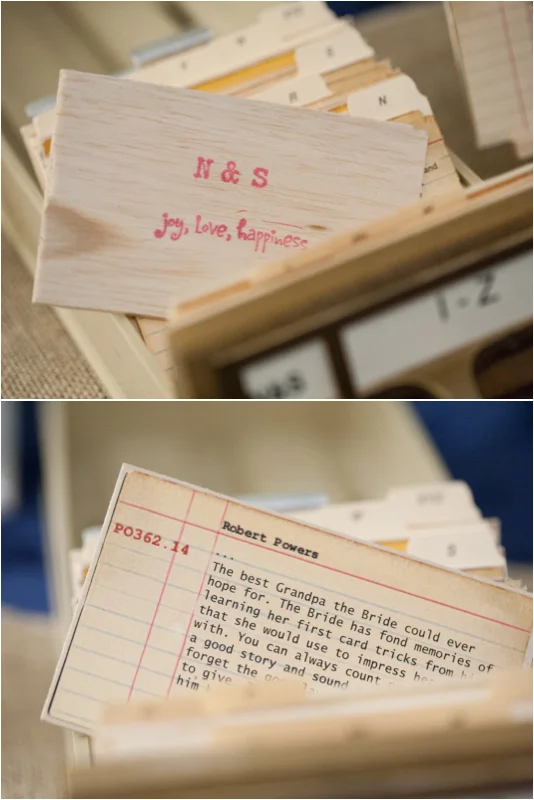 S
R
N
and
N & S
joy, love, happiness
1-Z
S
PO362.14
Robert Powers
...
The best Grandpa the Bride could ever
hope for. The Bride has fond memories of
learning her first card tricks from
that she would use to impress
with. You can always count
a good story and sound
forget the
to give
him